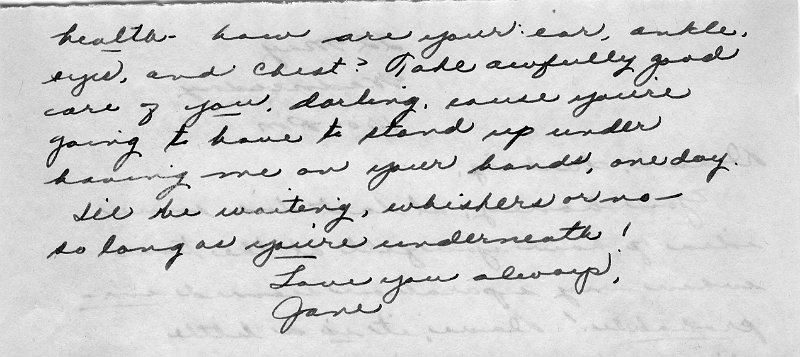 health - how are your ear, ankle,
eyes, and chest? Take awfully good
care of you, darling, cause you're
going to have to stand up under
having me on your hands, one day.
I'll be waiting, whiskers or no—
so long as you're underneath!
Love you always,
Jane